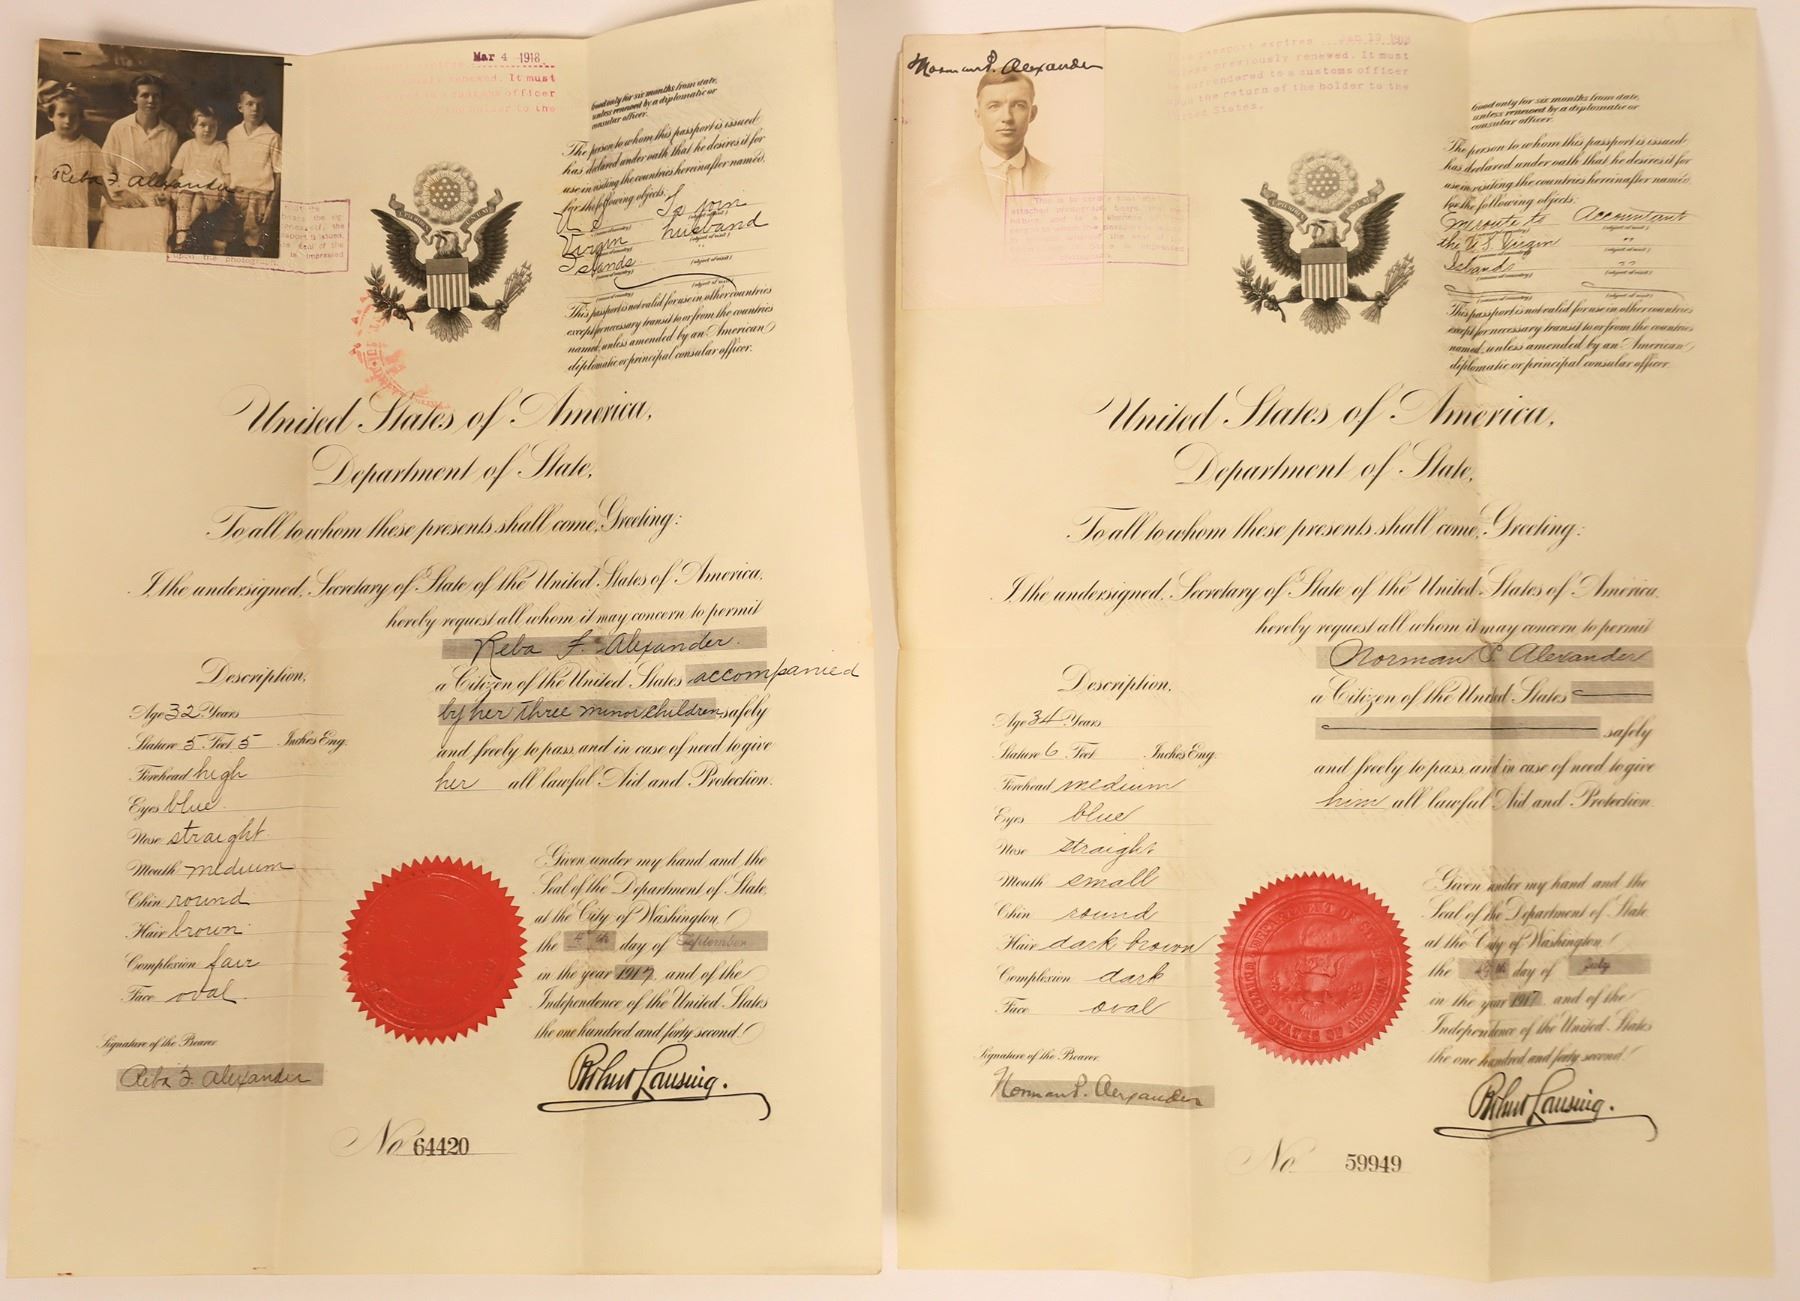 Mar 4 1918
previously renewed. It must
customs officer
holder to the
Reba F. Alexander
upon the photograph is impressed
Good only for six months from date,
unless renewed by a diplomatic or
consular officer.
The person to whom this passport is issued
has declared under oath that he desires it for
use in visiting the countries hereinafter named,
for the following objects:
To join
(object of visit)
Virgin husband
(object of visit)
Islands
(name of country) (object of visit)
This passport is not valid for use in other countries
except for necessary transit to or from the countries
named, unless amended by an American
diplomatic or principal consular officer.
United States of America,
Department of State,
To all to whom these presents shall come, Greeting:
I, the undersigned, Secretary of State of the United States of America,
hereby request all whom it may concern to permit
Reba F. Alexander.
a Citizen of the United States accompanied
by her three minor children safely
and freely to pass, and in case of need to give
her all lawful Aid and Protection.
Description,
Age 32 Years
Stature 5 Feet 5 Inches Eng.
Forehead high
Eyes blue
Nose straight
Mouth medium
Chin round
Hair brown
Complexion fair
Face oval
Signature of the Bearer
Reba F. Alexander
Given under my hand and the
Seal of the Department of State,
at the City of Washington,
the 4th day of September
in the year 1917, and of the
Independence of the United States
the one hundred and forty second.
Robert Lansing.
No 64420
Norman P. Alexander
passport expires
previously renewed. It must
surrendered to a customs officer
upon the return of the holder to the
United States.
This is to certify that the
attached photograph
Good only for six months from date,
unless renewed by a diplomatic or
consular officer.
The person to whom this passport is issued
has declared under oath that he desires it for
use in visiting the countries hereinafter named,
for the following objects:
Enroute to Accountant
(name of country) (object of visit)
the U S Virgin "
(object of visit)
Island "
(name of country) (object of visit)
(name of country) (object of visit)
This passport is not valid for use in other countries
except for necessary transit to or from the countries
named, unless amended by an American
diplomatic or principal consular officer.
United States of America,
Department of State,
To all to whom these presents shall come, Greeting:
I, the undersigned, Secretary of State of the United States of America,
hereby request all whom it may concern to permit
Norman P. Alexander
a Citizen of the United States
safely
and freely to pass, and in case of need to give
him all lawful Aid and Protection.
Description,
Age 34 Years
Stature 6 Feet Inches Eng.
Forehead medium
Eyes blue
Nose straight
Mouth small
Chin round
Hair dark brown
Complexion dark
Face oval
Signature of the Bearer
Norman P. Alexander
DEPARTMENT OF STATE
UNITED STATES OF AMERICA
Given under my hand and the
Seal of the Department of State,
at the City of Washington,
the day of July
in the year 1917, and of the
Independence of the United States
the one hundred and forty second.
Robert Lansing.
No 59949